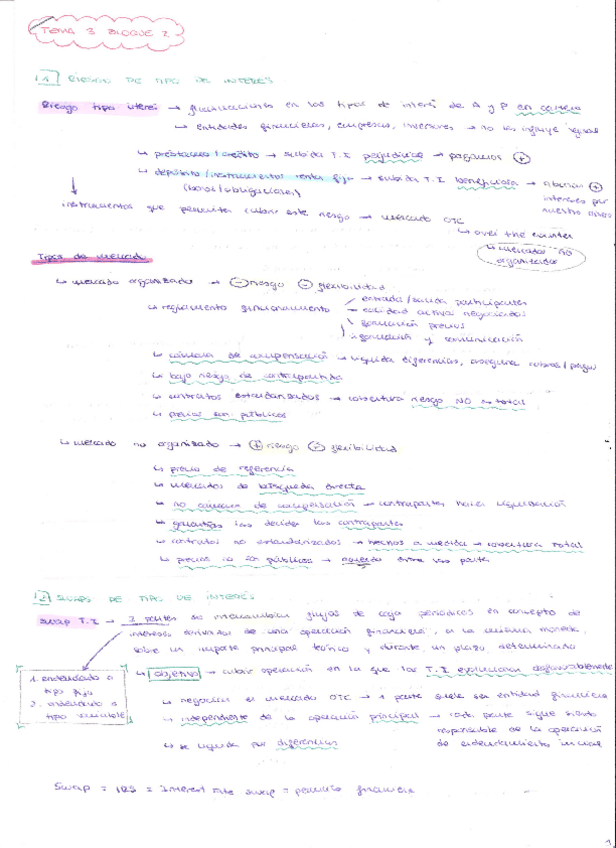 TEMA 3 BLOQUE 2
1.1 RIESGO DE TIPO DE INTERÉS
Riesgo tipo interés → fluctuaciones en los tipos de interés de A y P en cartera
↳ entidades financieras, empresas, inversores → no les influye igual
↳ préstamo/crédito → subida T.I perjudicial → pagamos +
↳ depósito/instrumentos renta fija → subida T.I beneficiosa → abonan +
(bonos/obligaciones) intereses por
instrumentos que permiten cubrir este riesgo → mercado OTC
↳ over the counter
↳ mercados NO
organizados
Tipos de mercado
↳ mercado organizado → - riesgo - flexibilidad
↳ reglamento funcionamiento
entrada/salida participantes
calidad activo negociados
formación precios
información y comunicación
↳ cámara de compensación → liquida diferencias, asegura cobros/pagos
↳ bajo riesgo de contrapartida
↳ contratos estandarizados → cobertura riesgo NO es total
↳ precios son públicos
↳ mercado no organizado → + riesgo + flexibilidad
↳ precio de referencia
↳ mercados de búsqueda directa
↳ no cámara de compensación → contrapartes hacen liquidación
↳ garantías las deciden las contrapartes
↳ contratos no estandarizados → hechos a medida → cobertura total
↳ precios no son públicos → acuerdo entre las partes
2 SWAPS DE TIPO DE INTERÉS
Swap T.I → 2 partes se intercambian flujos de caja periódicos en concepto de
intereses derivados de una operación financiera, en la misma moneda,
sobre un importe principal teórico y durante un plazo determinado
1. endeudado a
tipo fijo
2. endeudado a
tipo variable
↳ objetivo → cubrir operación en la que los T.I evolucionan desfavorablemente
↳ negocian en mercado OTC → 1 parte suele ser entidad financiera
↳ independiente de la operación principal → cada parte sigue siendo
responsable de la operación
de endeudamiento inicial
↳ se liquida por diferencias
Swap = IRS = interest rate swap = permuta financiera